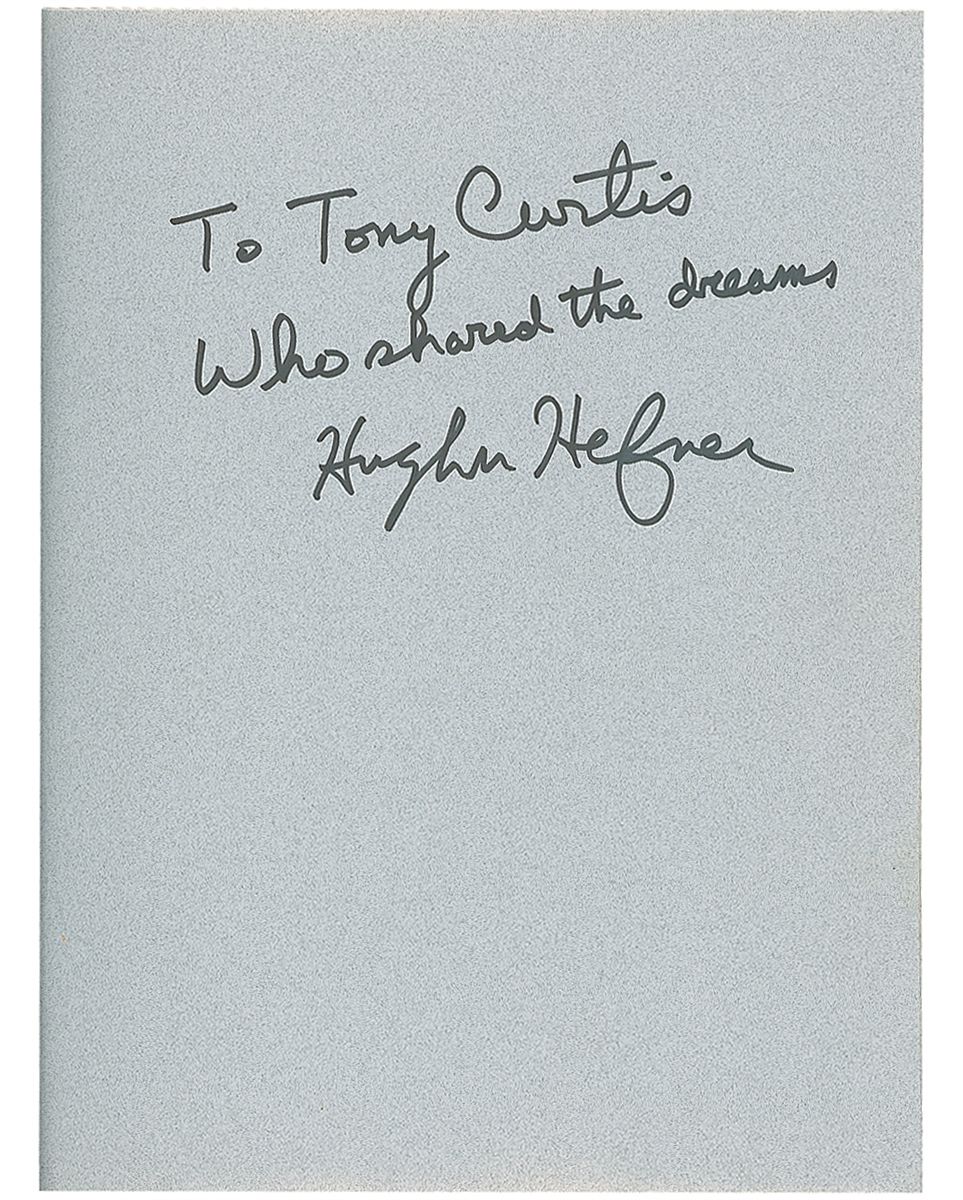 To Tony Curtis
Who shared the dreams
Hugh M Hefner